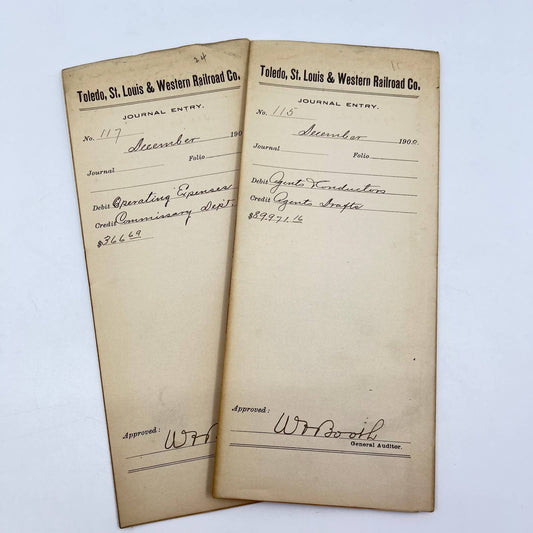 24
Toledo, St. Louis & Western Railroad Co.
JOURNAL ENTRY.
No. 117
December 190
Journal Folio
Debit Operating Expenses
Credit Commissary Dept.
$366 69
Approved:
11
Toledo, St. Louis & Western Railroad Co.
JOURNAL ENTRY.
No. 115
December 1900.
Journal Folio
Debit Agents & Conductors
Credit Agents Drafts
$89971.16
Approved:
Booth
General Auditor.